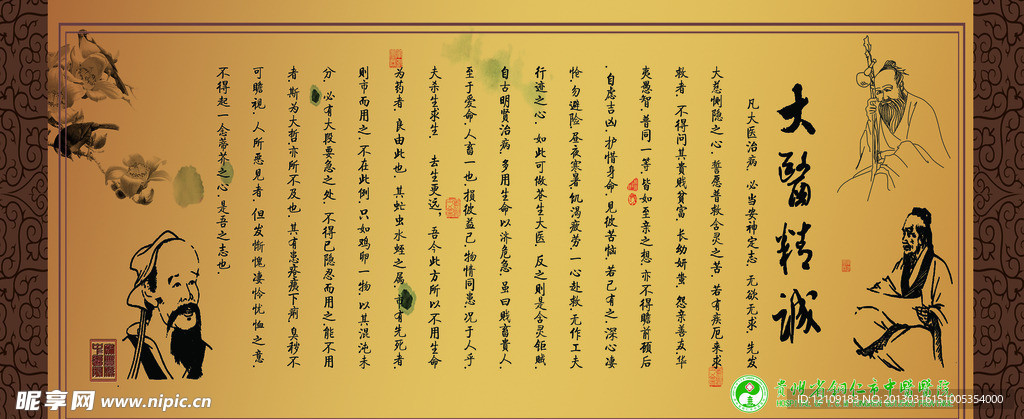 大醫精誠
凡大医治病.必当安神定志.无欲无求.先发
大慈恻隐之心.誓愿普救含灵之苦.若有疾厄来求
救者.不得问其贵贱贫富.长幼妍蚩.怨亲善友.华
夷愚智.普同一等.皆如至亲之想.亦不得瞻前顾后
.自虑吉凶.护惜身命.见彼苦恼.若己有之.深心凄
怆.勿避险.昼夜寒暑.饥渴疲劳.一心赴救.无作工夫
行迹之心.如此可做苍生大医.反之则是含灵钜贼.
自古明贤治病.多用生命以济危急.虽曰贱畜贵人.
至于爱命.人畜一也.损彼益己.物情同患.况于人乎.
夫杀生求生.去生更远.吾今此方所以不用生命
为药者.良由此也.其虻虫水蛭之属.市有先死者
则市而用之.不在此例.只如鸡卵一物.以其混沌未
分.必有大段要急之处.不得已隐忍而用之.能不用
者.斯为大哲亦所不及也.其有患疮痍下痢.臭秽不
可瞻视.人所恶见者.但发惭愧凄怜忧恤之意.
不得起一念蒂芥之心.是吾之志也.
贵州省铜仁市中医医院
昵享网 www.nipic.cn
ID:12109183 NO:20130316151005354000